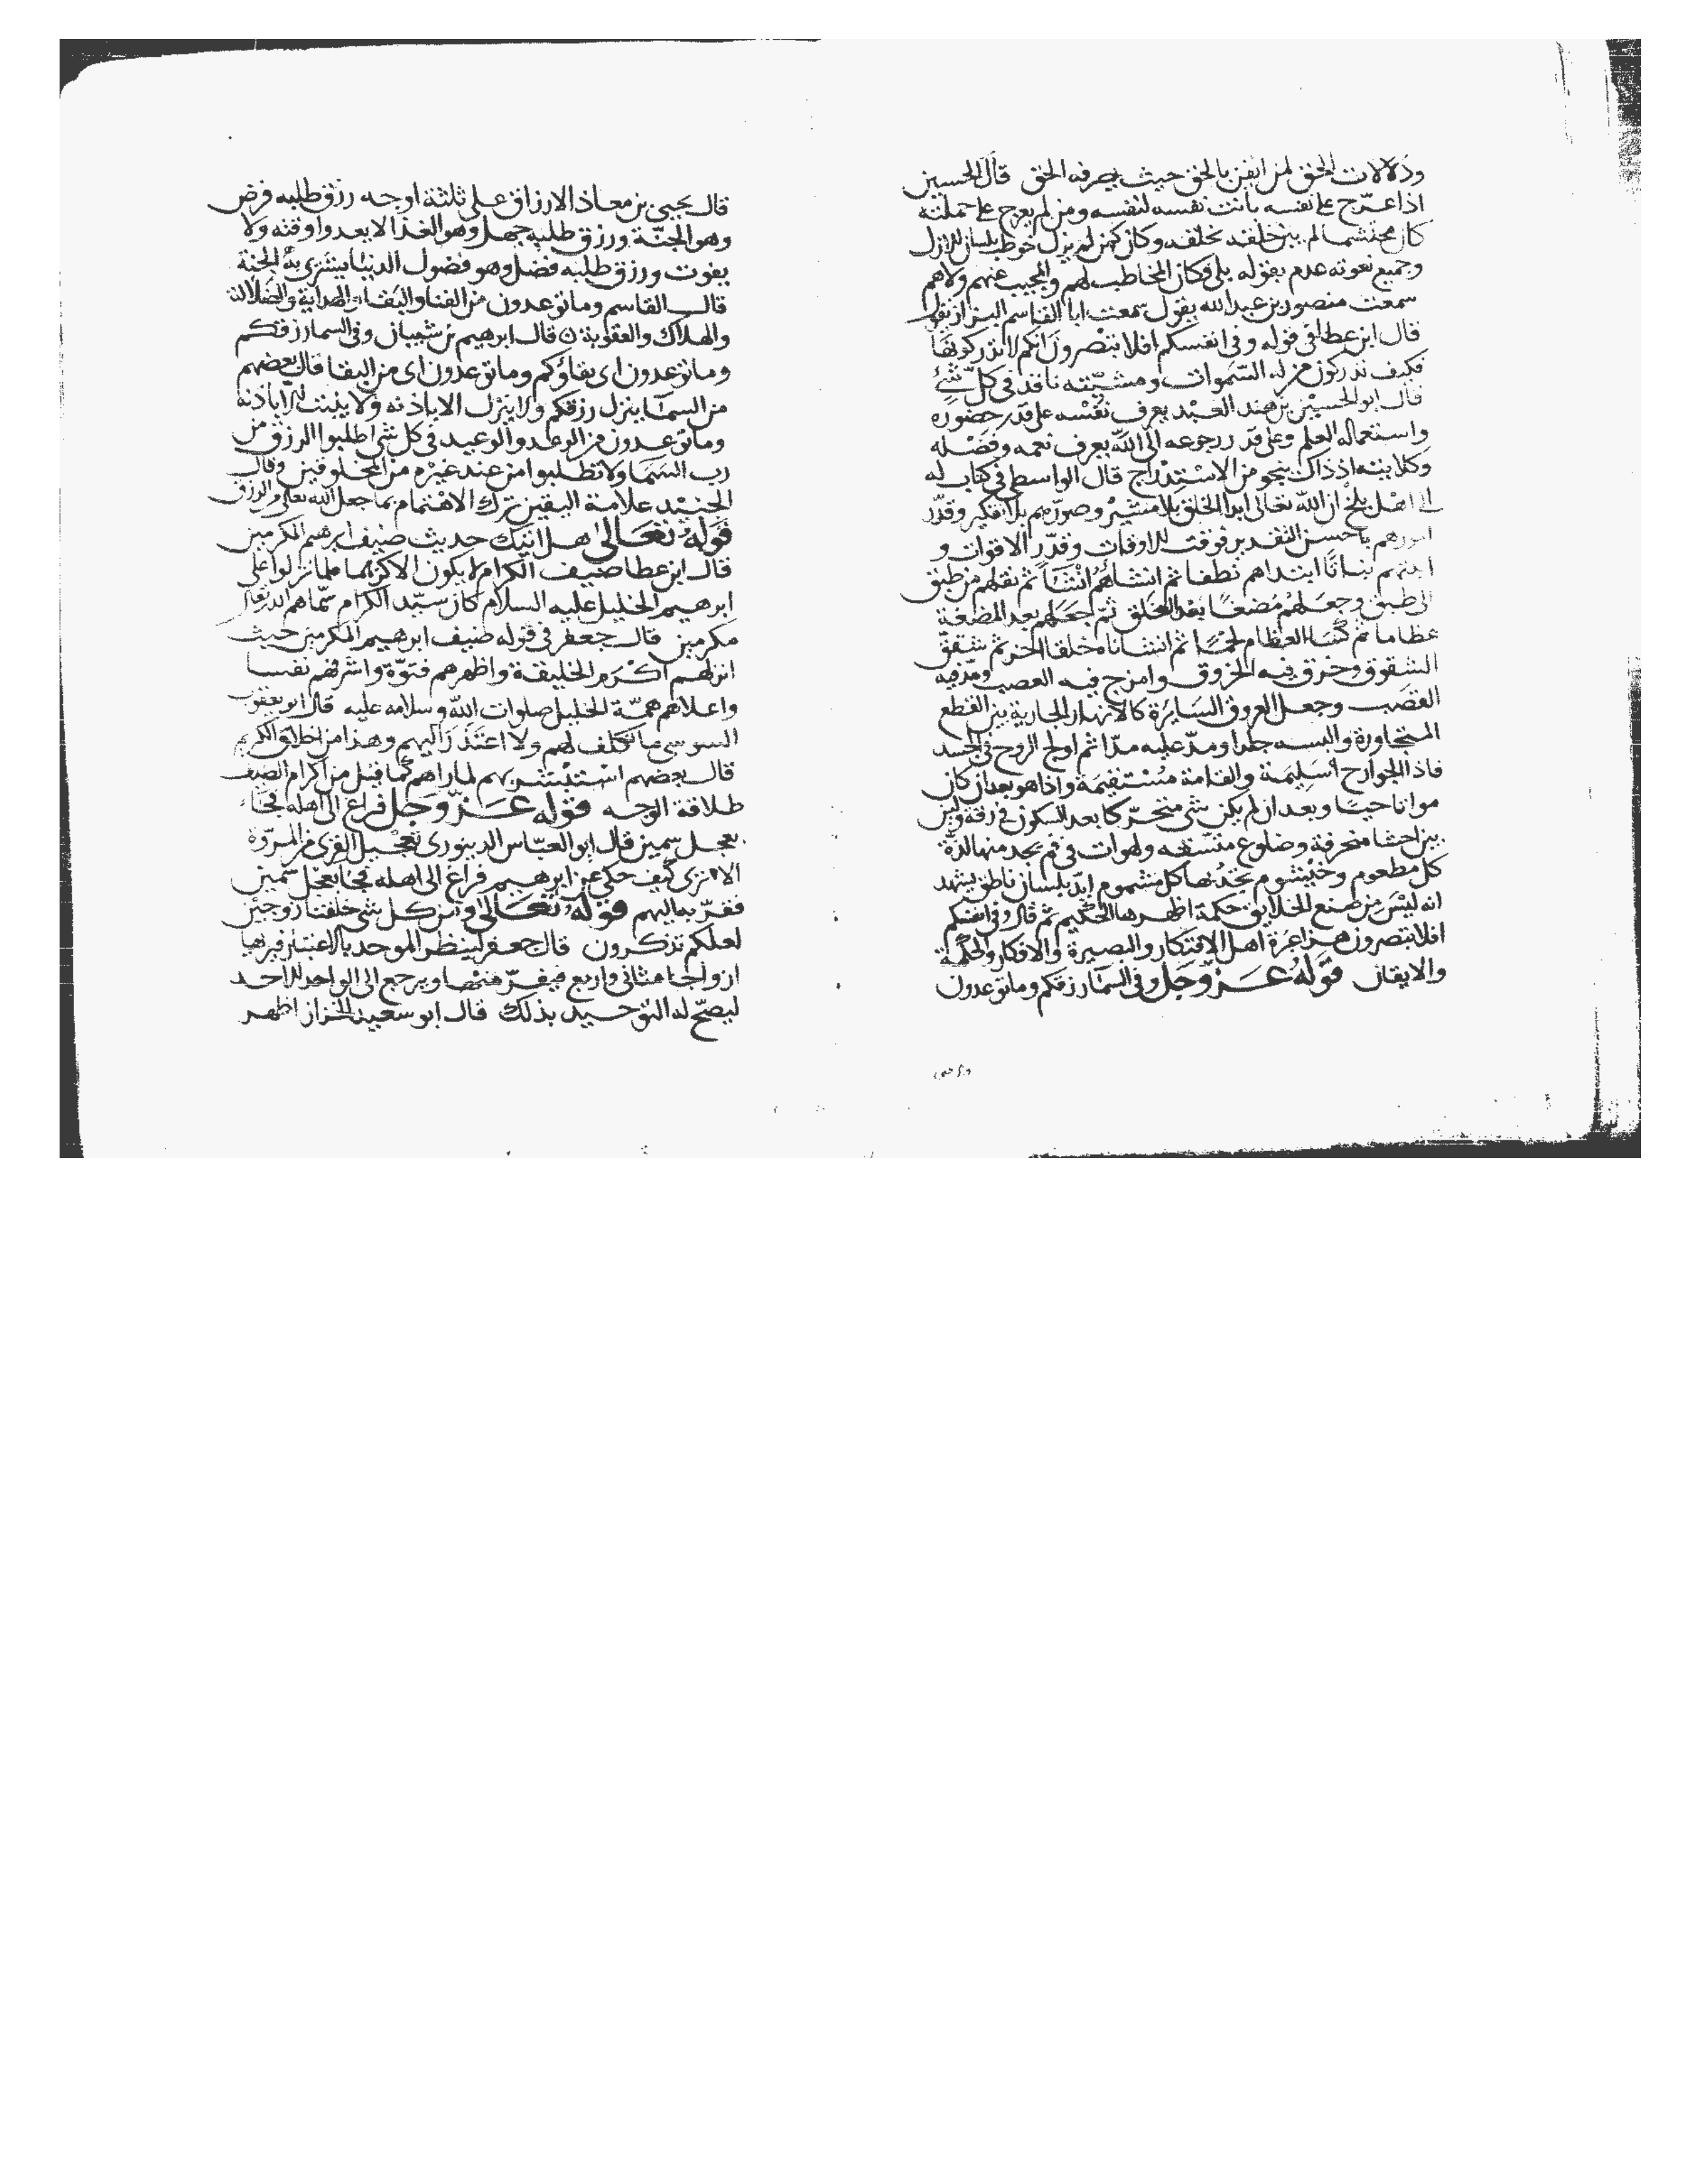 ودلالات الحق لمن ايقن بالحق حيث يصرفه الحق قال الحسين
اذا عرّج على نفسه بانت نفسه لنفسه ومن لم يعرج على جملته
كان محتشما لم يبن خلقه بخلقه وكان كمن لم يزل خوطب بلسان الازل
وجميع نعوته عدم بقوله بلى وكان المخاطب لهم والمجيب عنهم ولاهم
سمعت منصور بن عبد الله يقول سمعت ابا القاسم البزاز يقول
قال ابن عطا في قوله وفي انفسكم افلا تبصرون انكم لا تدركونها
فكيف تدركون من له السموات ومشيّته نافذ في كلّ شئ
قال ابو الحسين بن هند العبد يعرف نفسه على قدر حضوره
واستعماله العلم وعلى قدر رجوعه الى الله يعرف نعمه وفضله
وكلايته اذ ذاك ينجو من الاستدراج قال الواسطي في كتاب له
الى اهل بلخ ان الله تعالى ابدا الخلق بلا مشير وصوّرهم بلا تفكير وقدّر
امورهم باحسن التقدير فوقت للاوقات وقدّر الاقوات و
انبتهم نباتا ابتداهم نطفا ثم انشاهم انشاً ثم نقلهم من طبق
الى طبق وجعلهم مضغا بعد العلق ثمّ جعلهم بعد المضغة
عظاما ثم كسا العظام لحمًا ثم انشاناه خلقا اخر ثم شقق
الشقوق وخرق فيه الخروق وامزج فيه العصب ومدّ فيه
القصب وجعل العروق السايرة كالانهار الجارية بين القطع
المتجاورة والبسه جلدا ومدّ عليه مدّا ثم اولج الروح في الجسد
فاذا الجوارح سليمة والقامة مستقيمة واذا هو بعد ان كان
مواتا حيًا وبعد ان لم يكن شى متحرّكا بعد السكون في رقة ولين
بين احشا منحرفة وضلوع متسقه ولهوات في فم يجد منها لذّة
كل مطعوم وخيشوم يجد بها كل مشموم ايّد بلسان ناطق يشهد
انه ليس من صنع الخلايق حكمة اظهرها الحكيم ثم قال وفي انفسكم
افلا تبصرون هذا عبرة اهل الافتكار والبصيرة والافكار والحكمة
والايقان قوله عزّ وجلّ وفي السمآ رزقكم وما توعدون
قال يحيى بن معاذ الارزاق على ثلثة اوجه رزق طلبه فرض
وهو الجنّة ورزق طلبه جهل وهو الغذا لا يعدوا وقته ولا
يفوت ورزق طلبه فضل وهو فضول الدنيا يشترى به الجنة
قال القاسم وما توعدون من الفنا والبقا والهداية والضلالة
والهلاك والعقوبة ن قال ابرهيم بن شيبان وفي السما رزقكم
وما توعدون اى بقاؤكم وما توعدون اى من البقا قال بعضهم
من السمآ ينزل رزقكم ولا ينزل الا باذنه ولا ينبت الا باذنه
وما توعدون من الوعد والوعيد في كل شى اطلبوا الرزق من
رب السما ولا تطلبوا من عند غيره من المخلوقين وقال
الجنيد علامة اليقين ترك الاهتمام بما جعل الله تعالى من الرزق
قوله تعالى هل اتيك حديث ضيف ابرهيم المكرمين
قال ابن عطا ضيف الكرام لا يكون الا كريما فلما نزلوا على
ابرهيم الخليل عليه السلام كان سيّد الكرام سمّاهم الله تعالى
مكرمين قال جعفر في قوله ضيف ابرهيم المكرمين حيث
انزلهم اكرم الخليقة واظهرهم فتوّة واشرفهم نفسا
واعلاهم همّة الخليل صلوات الله وسلامه عليه قال ابو يعقوب
السوسي ما تكلف لهم ولا اعتذر اليهم وهذا من اخلاق الكريم
قال بعضهم استبشر بهم لما راهم كما قيل من اكرام الضيف
طلاقة الوجه قوله عزّ وجل فراغ الى اهله فجآء
بعجل سمين قال ابو العباس الدينورى تعجيل القرى من المروّة
الا ترى كيف حكى عن ابرهيم فراغ الى اهله فجا بعجل سمين
فقرّبه اليهم قوله تعالى ومن كل شى خلقنا زوجين
لعلكم تذكرون قال جعفر لينظر الموحد بالاعتبار فيراها
ازواجا مثانى واربع فيفرّ منها ويرجع الى الواحد الاحد
ليصحّ له التوحيد بذلك قال ابو سعيد الخراز اظهر